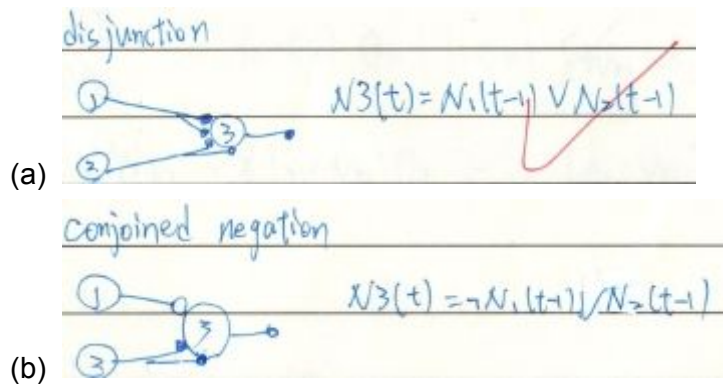 disjunction
1
N3(t) = N₁(t-1) ∨ N₂(t-1)
3
(a) 2
conjoined negation
1
N3(t) = ¬N₁(t-1) ∨ N₂(t-1)
3
(b) 3